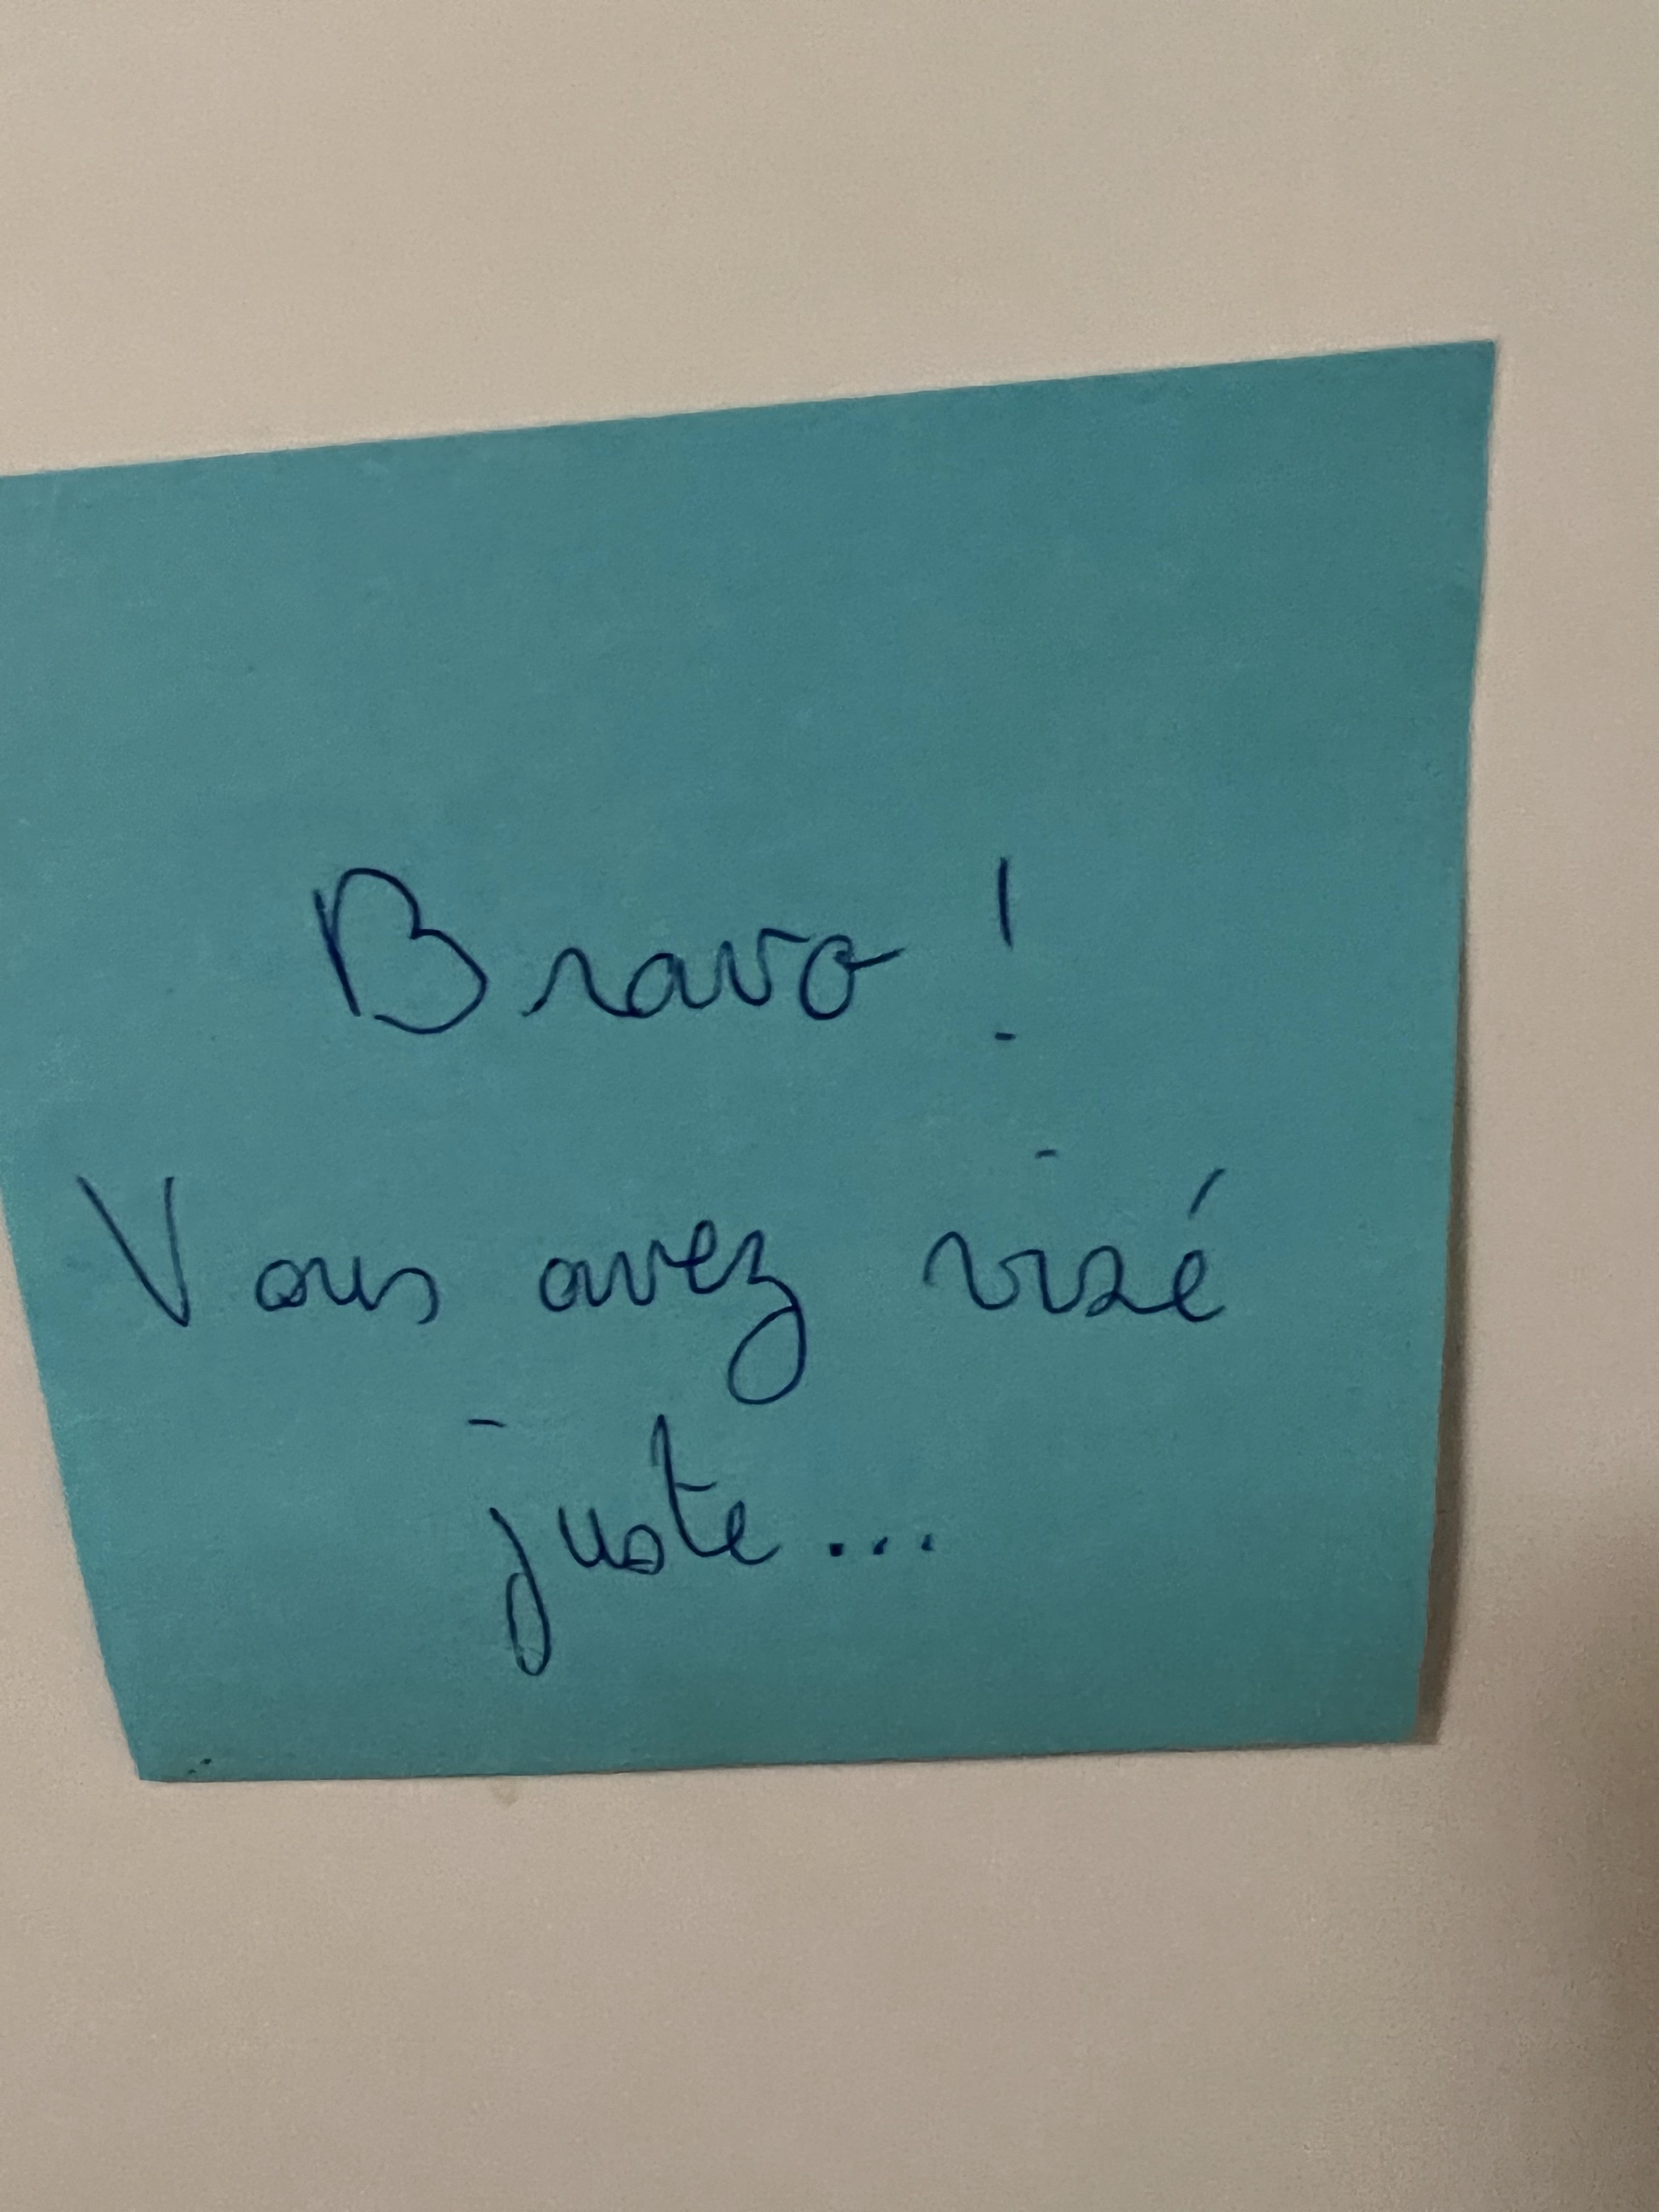 Bravo !
Vous avez visé
juste...